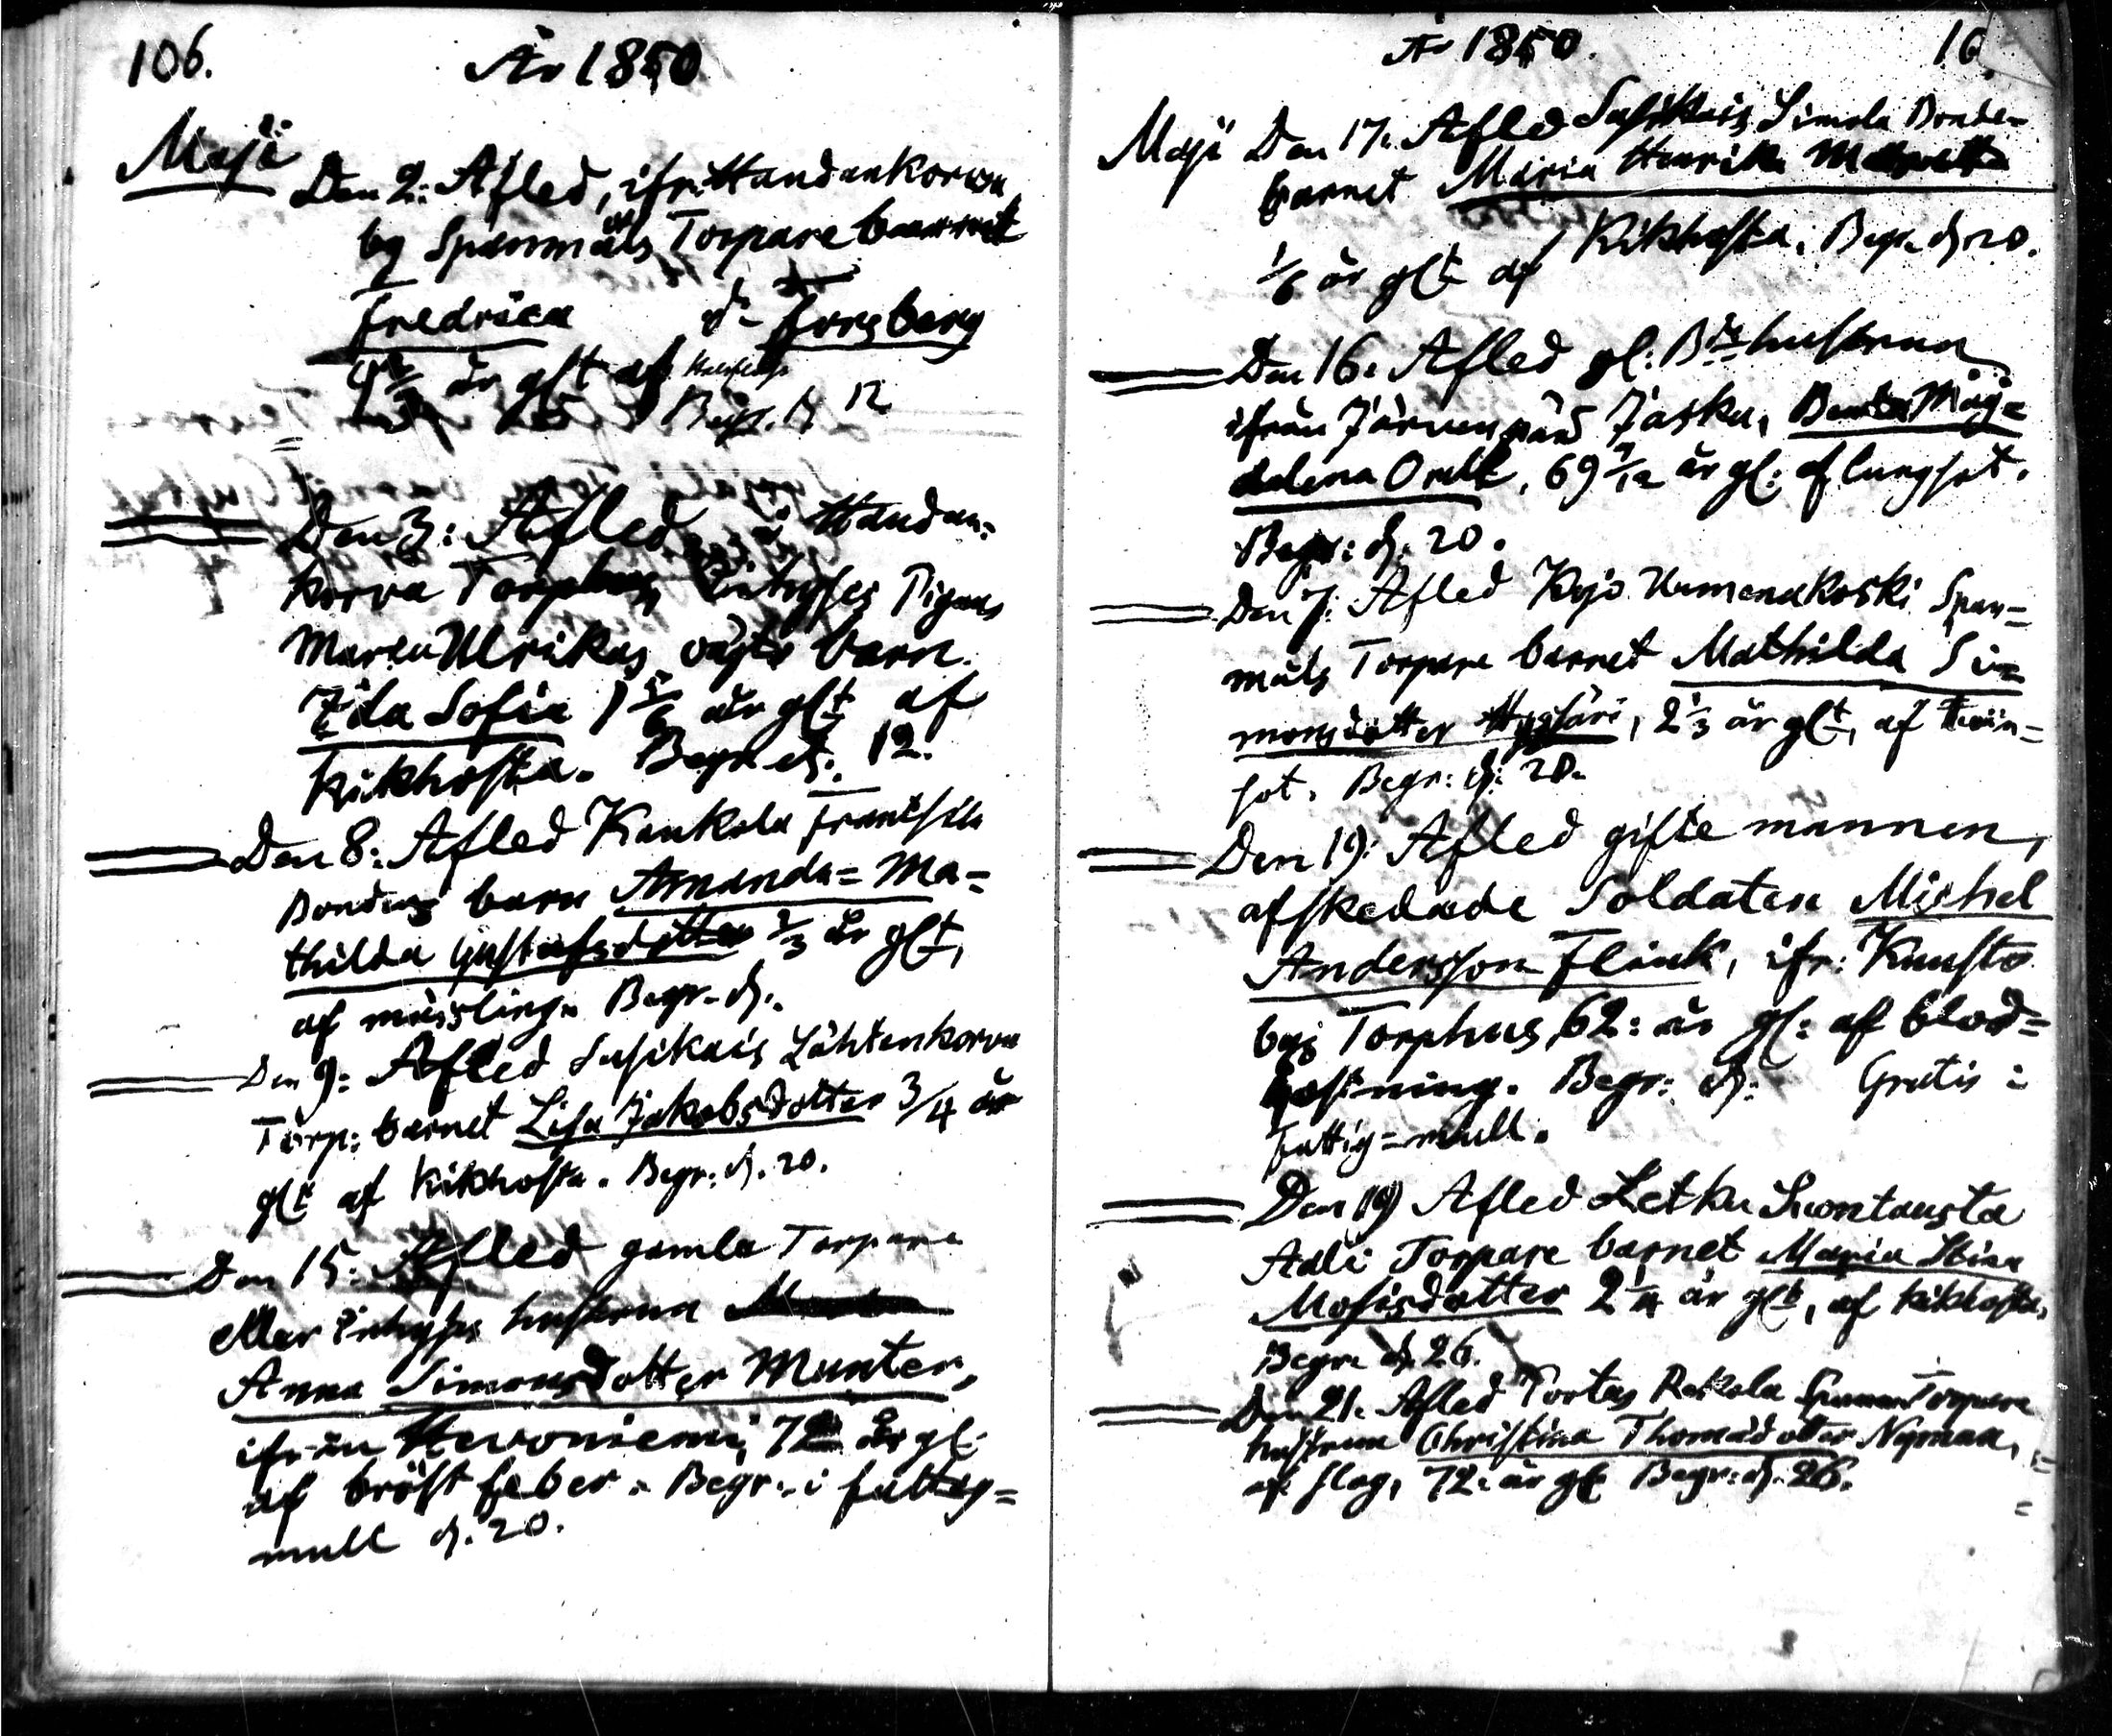 106.
År 1850
Maji
Den 2: Afled, ifr: Handankorva
by Spanmåls Torpare barnet
Fredrica d:r Forsberg
år glt af
Begr. d. 12
Den 3: Afled Handan-
korva Torphus Inhyses Pigans
Maria Ulrikas oägta barn.
Ida Sofia 1 5/6 år glt af
Kikhosta. Begr. d: 12.
Den 8: Afled Kaukola Frantsila
Bondens barn Amanda= Ma=
thilda Gustafsdotter 2/3 år glt,
af mässling. Begr. d.
Den 9: Afled Susikais Lähteenkorva
Torp: barnet Lisa Jakobsdotter 3/4 år
glt af Kikhosta. Begr: d. 20.
Den 15: Afled gamla Torpare
eller Inhyses hustrun
Anna Simonsdotter Munter,
ifrån Hevoniemi, 72 år gl:
af bröst feber. Begr. i fattig=
mull d. 20.
År 1850.
10
Maji Den 17. Afled Susikais Simola Bonde-
barnet Maria Henrika
1/6 år glt af Kikhosta. Begr. d. 20.
Den 16. Afled gl: Bde hustrun
ifrån Järvenpää Jasku, Beata Mag=
dalena Orell, 69 7/12 år gl: af lungsot.
Begr: d. 20.
Den 7: Afled Kojo Kumenakoski Span=
måls Torpare barnet Mathilda Si=
monsdotter, 2 1/3 år glt, af twin=
sot. Begr: d: 20.
Den 19: Afled gifte mannen,
afskedade Soldaten Michel
Andersson Flink, ifr: Kuusto
bys Torphus, 62: år gl: af blod=
hostning. Begr: d: Gratis i
fattig=mull.
Den 19 Afled Letku Suontausta
Adli Torpare barnet Maria Stina
Mosisdotter 2 1/4 år glt, af kikhosta,
Begr. d. 26.
Den 21. Afled Portas Rekola Torpare
hustrun Christina Thomasdotter Nyman,
af slag, 72: år gl: Begr: d. 26.